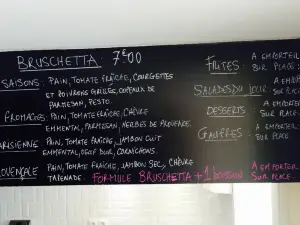 BRUSCHETTA: 7€00
SAISONS: PAIN, TOMATE FRAÎCHE, COURGETTES
ET POIVRONS GRILLÉS, COPEAUX DE
PARMESAN, PESTO.
FROMAGÈRES: PAIN, TOMATE FRAÎCHE, CHÈVRE
EMMENTAL, PARMESAN, HERBES DE PROVENCE.
ARISIENNE PAIN, TOMATE FRAÎCHE, JAMBON CUIT
EMMENTAL, OEUF DUR, CORNICHONS.
OVENÇALE PAIN, TOMATE FRAÎCHE, JAMBON SEC, CHÈVRE
TAPENADE.
FORMULE BRUSCHETTA + 1 BOISSON
A EMPORTER
SUR PLACE:
SALADES DU JOUR: A EMPORTER
SUR PLACE
DESSERTS: A EMPORTER
SUR PLACE
GAUFRES: A EMPORTER
SUR PLACE
A EMPORTER
SUR PLACE